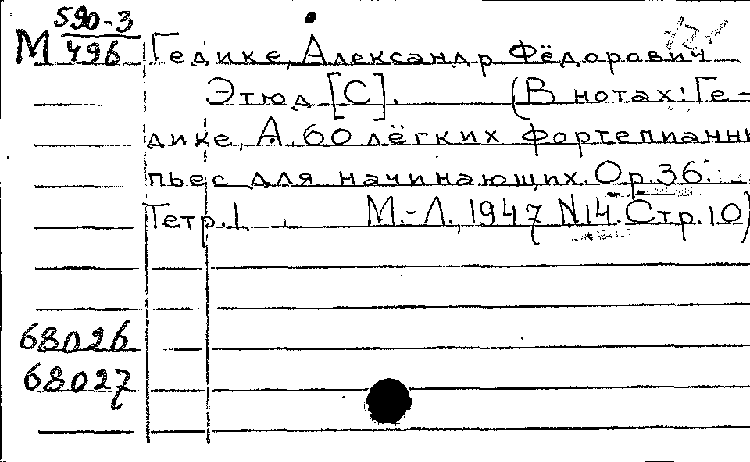 М 590-3/496 Гедике, Александр Фёдорович
Этюд [C]. (В нотах: Ге-
дике, А. 60 лёгких фортепианн
пьес для начинающих. Ор. 36.
Тетр. I. М.-Л., 1947 N14. Стр. 10)
68026
68027